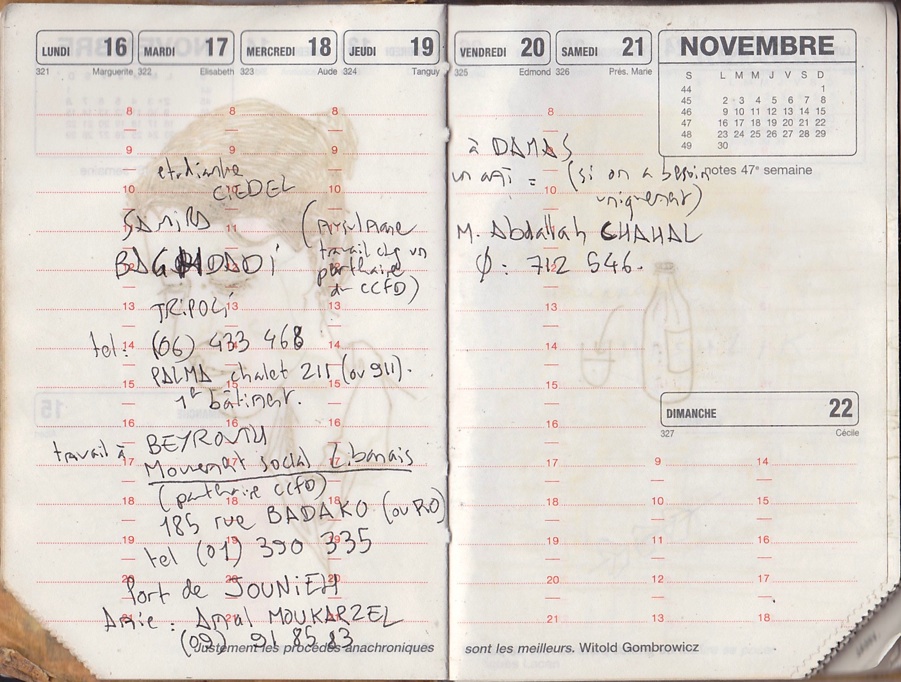 LUNDI 16
321 Marguerite
MARDI 17
322 Elisabeth
MERCREDI 18
323 Aude
JEUDI 19
324 Tanguy
etudiante
CIEDEL
SAMIRA
BAGHDADI
(musulmane
travail chez un
partenaire
du CCFD)
TRIPOLI
tel : (06) 433 468
PALMA chalet 211 (ou 911).
1er bâtiment.
travail à BEYROUTH
Mouvement social Libanais
(partenaire CCFD)
185 rue BADARO (ou RO)
tel (01) 390 335
Port de JOUNIEH
Amie : Amal MOUKARZEL
(09) 91 85 83
Justement les procédés anachroniques
VENDREDI 20
325 Edmond
SAMEDI 21
326 Prés. Marie
NOVEMBRE
S L M M J V S D
44 1
45 2 3 4 5 6 7 8
46 9 10 11 12 13 14 15
47 16 17 18 19 20 21 22
48 23 24 25 26 27 28 29
49 30
notes 47e semaine
à DAMAS
un ami = (si on a besoin
uniquement)
M. Abdallah CHAHAL
Ø : 712 546.
DIMANCHE 22
327 Cécile
8
9
10
11
12
13
14
15
16
17 9 14
18 10 15
19 11 16
20 12 17
21 13 18
sont les meilleurs. Witold Gombrowicz